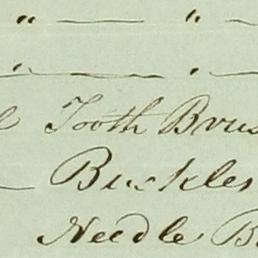 " — " —
" — " —
Tooth Brus
— Buckles
Needle B